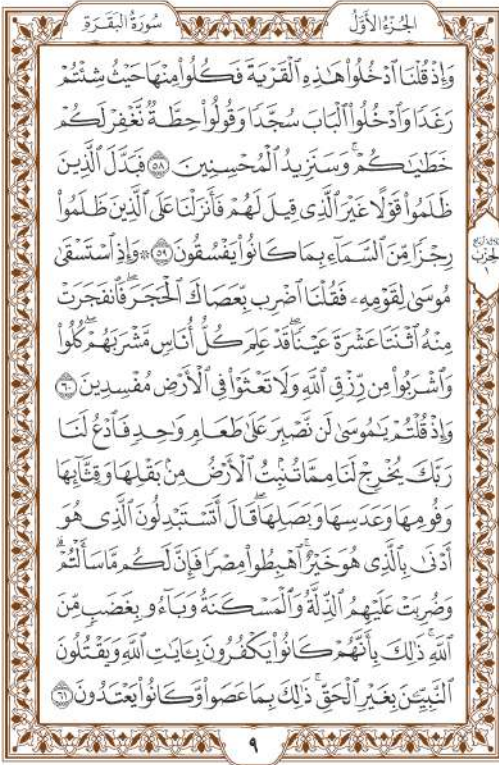 الجُزْءُ الأَوَّلُ
سُورَةُ البَقَرَةِ
وَإِذْ قُلْنَا ٱدْخُلُوا۟ هَٰذِهِ ٱلْقَرْيَةَ فَكُلُوا۟ مِنْهَا حَيْثُ شِئْتُمْ
رَغَدًا وَٱدْخُلُوا۟ ٱلْبَابَ سُجَّدًا وَقُولُوا۟ حِطَّةٌ نَّغْفِرْ لَكُمْ
خَطَٰيَٰكُمْ ۚ وَسَنَزِيدُ ٱلْمُحْسِنِينَ ٥٨ فَبَدَّلَ ٱلَّذِينَ
ظَلَمُوا۟ قَوْلًا غَيْرَ ٱلَّذِى قِيلَ لَهُمْ فَأَنزَلْنَا عَلَى ٱلَّذِينَ ظَلَمُوا۟
رِجْزًا مِّنَ ٱلسَّمَآءِ بِمَا كَانُوا۟ يَفْسُقُونَ ٥٩ ۞ وَإِذِ ٱسْتَسْقَىٰ
مُوسَىٰ لِقَوْمِهِۦ فَقُلْنَا ٱضْرِب بِّعَصَاكَ ٱلْحَجَرَ ۖ فَٱنفَجَرَتْ
مِنْهُ ٱثْنَتَا عَشْرَةَ عَيْنًا ۖ قَدْ عَلِمَ كُلُّ أُنَاسٍ مَّشْرَبَهُمْ ۖ كُلُوا۟
وَٱشْرَبُوا۟ مِن رِّزْقِ ٱللَّهِ وَلَا تَعْثَوْا۟ فِى ٱلْأَرْضِ مُفْسِدِينَ ٦٠
وَإِذْ قُلْتُمْ يَٰمُوسَىٰ لَن نَّصْبِرَ عَلَىٰ طَعَامٍ وَٰحِدٍ فَٱدْعُ لَنَا
رَبَّكَ يُخْرِجْ لَنَا مِمَّا تُنۢبِتُ ٱلْأَرْضُ مِنۢ بَقْلِهَا وَقِثَّآئِهَا
وَفُومِهَا وَعَدَسِهَا وَبَصَلِهَا ۖ قَالَ أَتَسْتَبْدِلُونَ ٱلَّذِى هُوَ
أَدْنَىٰ بِٱلَّذِى هُوَ خَيْرٌ ۚ ٱهْبِطُوا۟ مِصْرًا فَإِنَّ لَكُم مَّا سَأَلْتُمْ ۗ
وَضُرِبَتْ عَلَيْهِمُ ٱلذِّلَّةُ وَٱلْمَسْكَنَةُ وَبَآءُو بِغَضَبٍ مِّنَ
ٱللَّهِ ۗ ذَٰلِكَ بِأَنَّهُمْ كَانُوا۟ يَكْفُرُونَ بِـَٔايَٰتِ ٱللَّهِ وَيَقْتُلُونَ
ٱلنَّبِيِّـۧنَ بِغَيْرِ ٱلْحَقِّ ۗ ذَٰلِكَ بِمَا عَصَوا۟ وَّكَانُوا۟ يَعْتَدُونَ ٦١
الحِزْبُ
١
٩